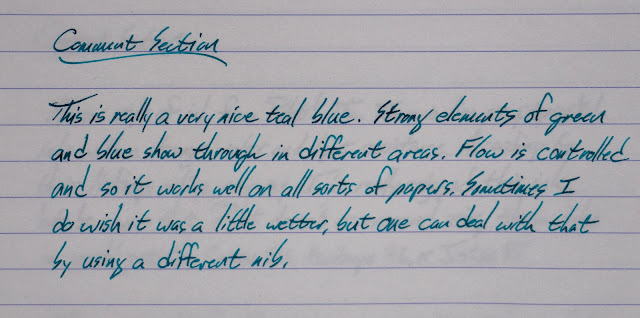 Comment Section
This is really a very nice teal blue. Strong elements of green
and blue show through in different areas. Flow is controlled
and so it works well on all sorts of papers. Sometimes, I
do wish it was a little wetter, but one can deal with that
by using a different nib.